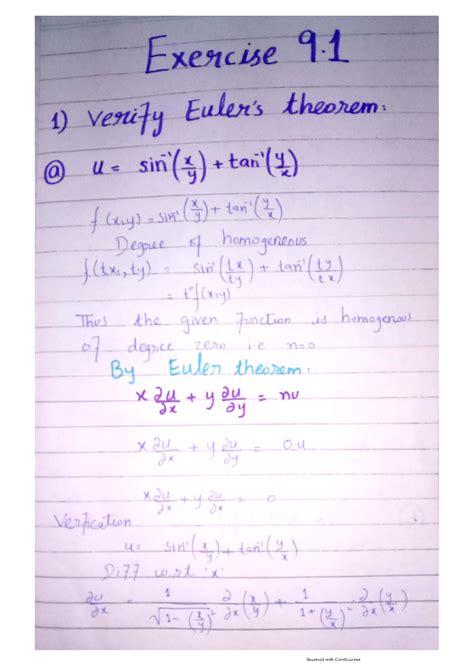 Exercise 9.1
1) Verify Euler's theorem:
ⓐ u = sin⁻¹(x/y) + tan⁻¹(y/x)
f(x,y) = sin⁻¹(x/y) + tan⁻¹(y/x)
Degree of homogeneous
f(tx, ty) = sin⁻¹(tx/ty) + tan⁻¹(ty/tx)
= t⁰f(x,y)
Thus the given function is homogenous
of degree zero i.e n=0
By Euler theorem:
x ∂u/∂x + y ∂u/∂y = nu
x ∂u/∂x + y ∂u/∂y = 0.u
x ∂u/∂x + y ∂u/∂y = 0
Verfication
u = sin⁻¹(x/y) + tan⁻¹(y/x)
Diff w.r.t 'x'
∂u/∂x = 1/√(1-(x/y)²) ∂/∂x(x/y) + 1/(1+(y/x)²) ∂/∂x(y/x)
Scanned with CamScanner